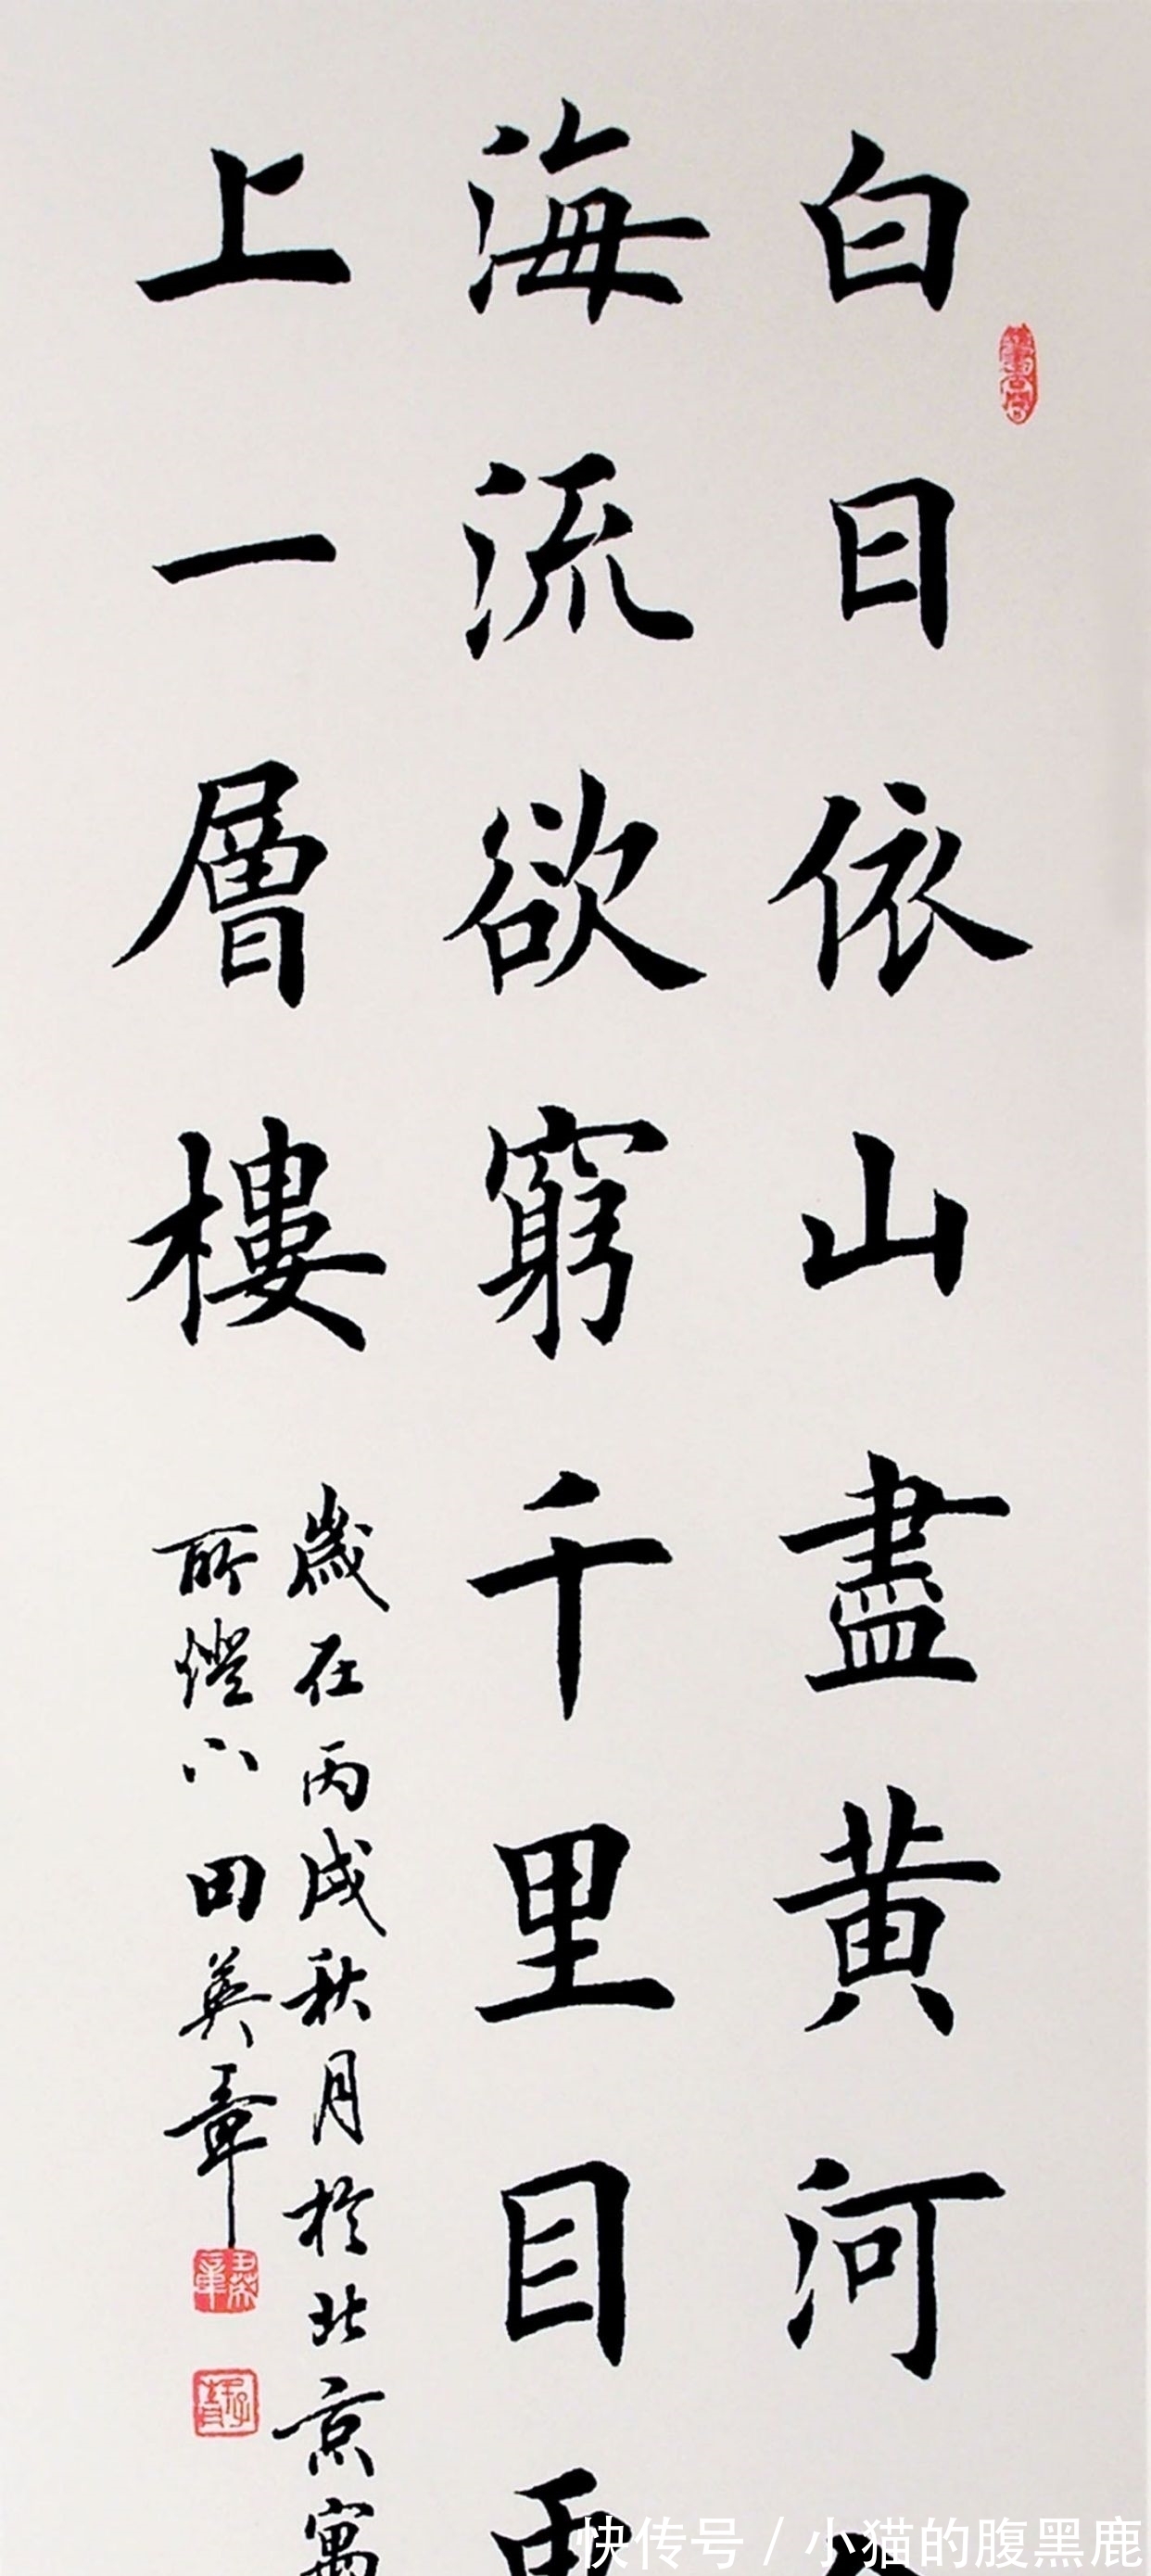 白日依山盡黄河
海流欲窮千里目
上一層樓
歲在丙戌秋月於北京寓
所燈下田英章
快传号 / 小猫的腹黑鹿